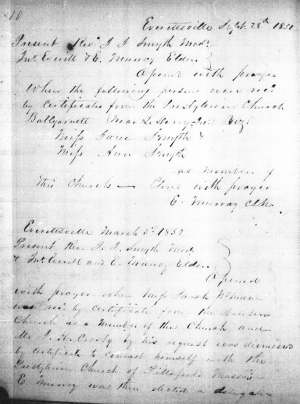 Everettsville Sept 28th 185
Present Rev. J. J. Smyth Modr
Jno. Everett & E. Murray Elders
Opened with prayer
When the following persons were recd
by Certificate from the Presbyterian Church
Ballygarnett
Miss Smyth
Miss Ann Smyth
as members of
this Church — Closed with prayer
E. Murray Clk
Everettsville March 5th 1852
Present Rev. J. J. Smyth Modr
& Jno. Everett and E. Murray Elders
Opened
with prayer when Miss Sarah
was recd by Certificate from the
Church as a member of this Church and
Mr. J. H. Crosby by his request was dismissed
by Certificate to connect himself with the
Presbyterian Church of Pittsfield
E. Murray was then elected a delegate